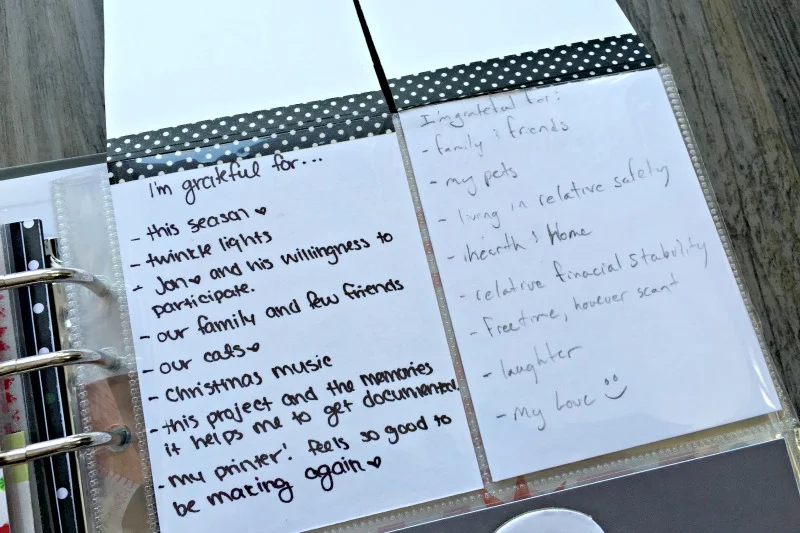 I'm grateful for...
- this season ♥
- twinkle lights
- Jon ♥ and his willingness to
participate.
- our family and few friends
- our cats ♥
- christmas music
- this project and the memories
it helps me to get documented.
- my printer! feels so good to
be making again ♥
I'm grateful for:
- family & friends
- my pets
- living in relative safety
- hearth & Home
- relative finacial stability
- Freetime, however scant
- laughter
- My Love ☺